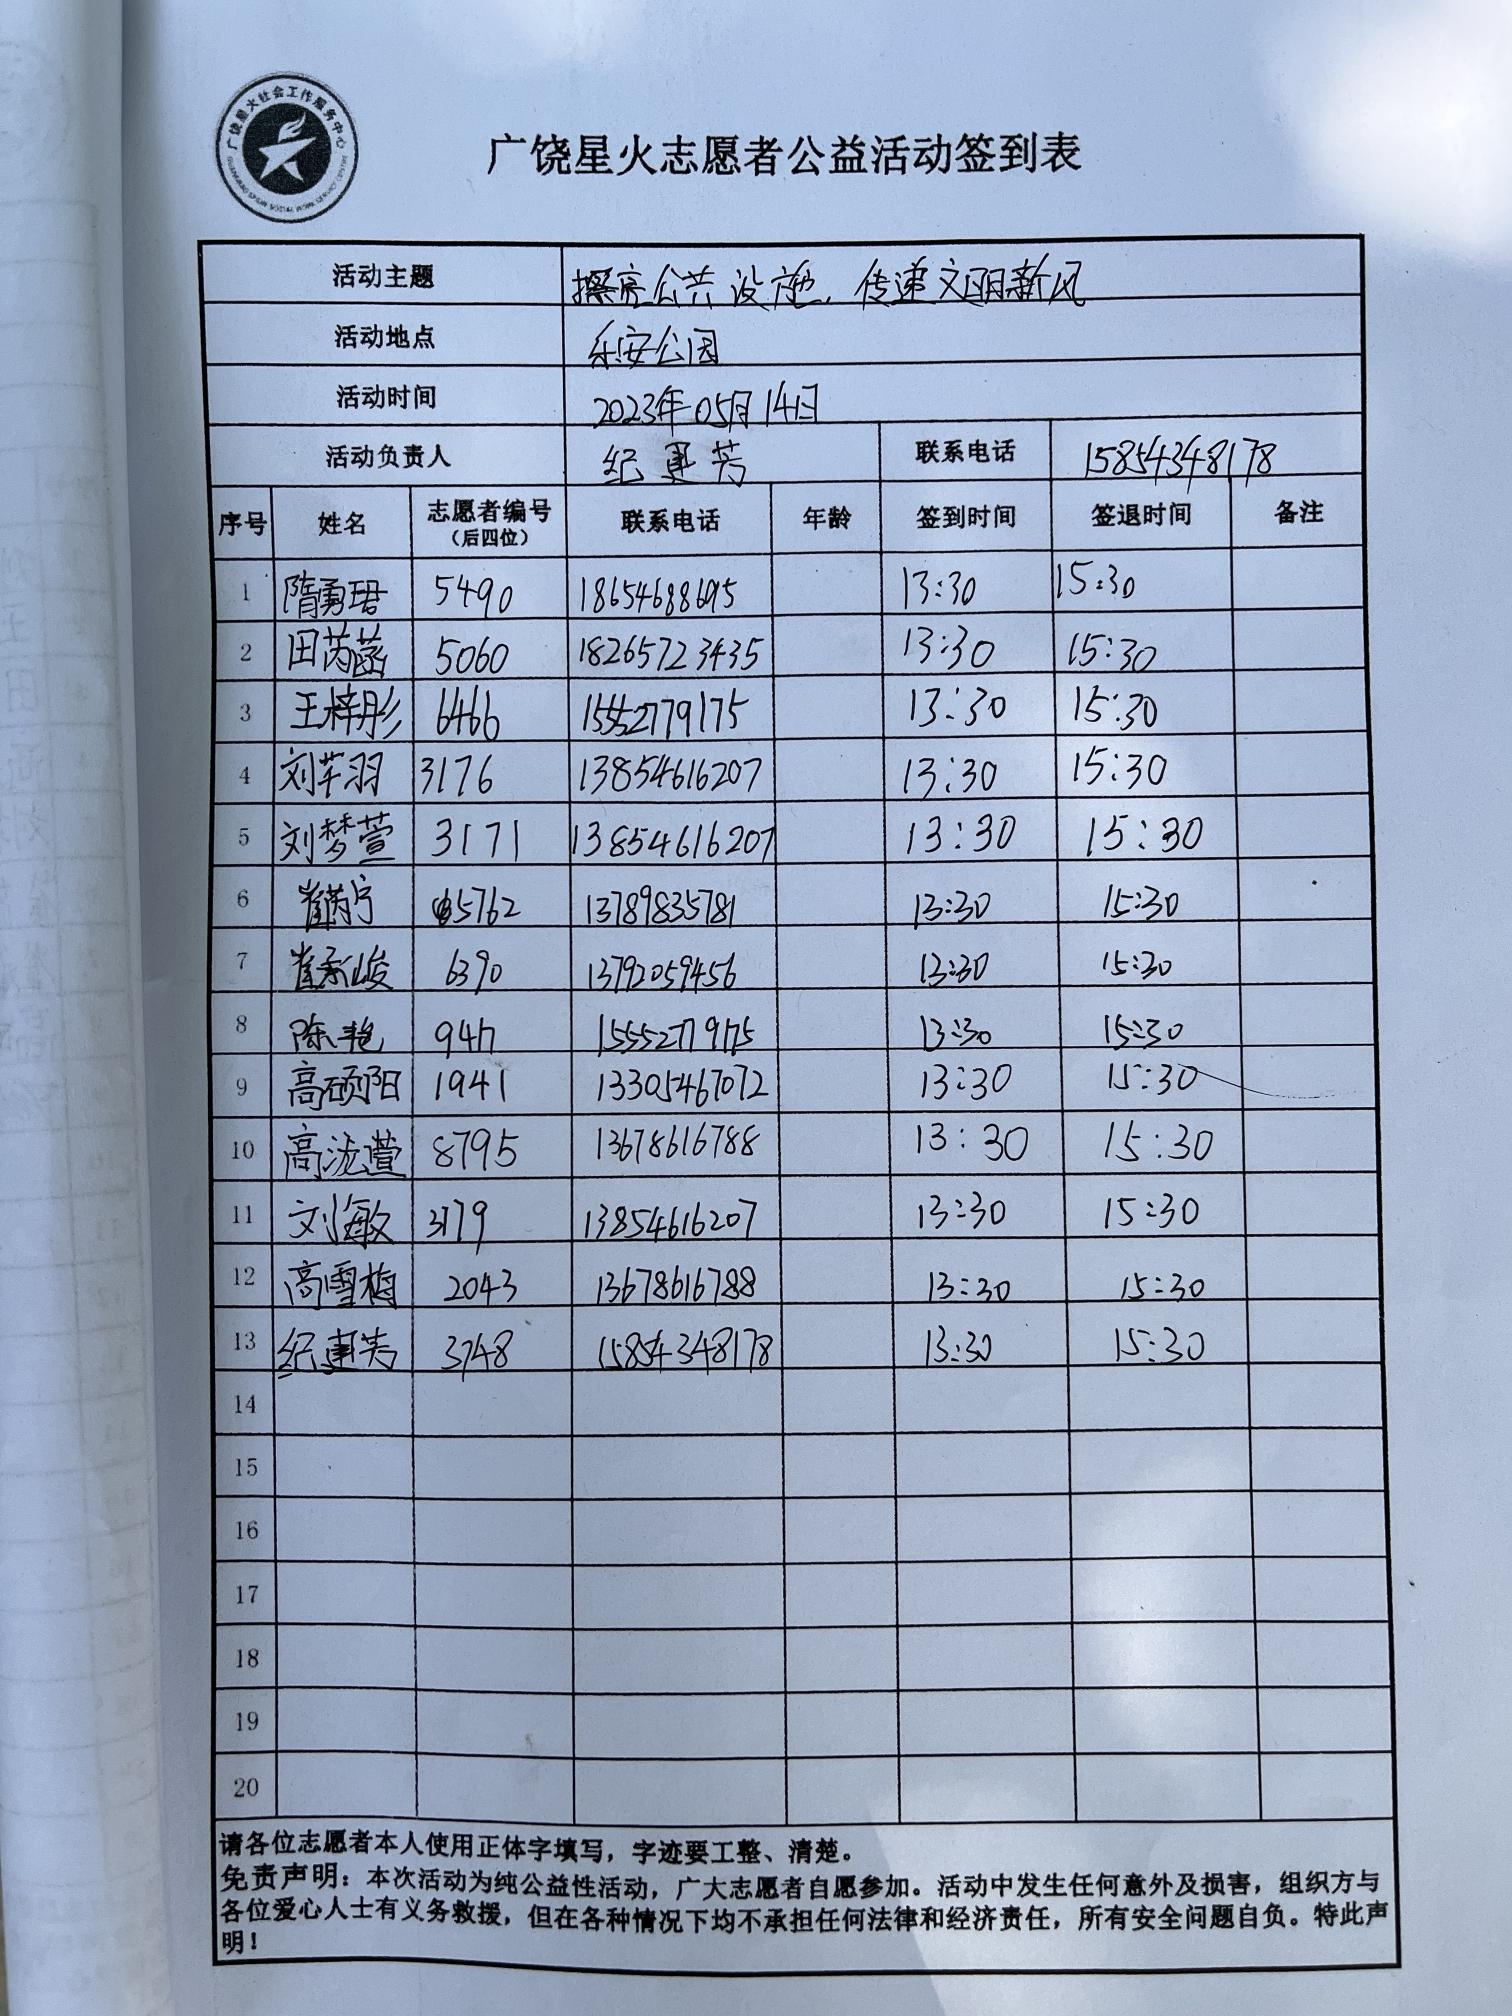 广饶星火社会工作服务中心
广饶星火志愿者公益活动签到表
活动主题 擦亮公共设施,传递文明新风
活动地点 乐安公园
活动时间 2023年05月14日
活动负责人 纪建芳 联系电话 15854348178
序号 姓名 志愿者编号(后四位) 联系电话 年龄 签到时间 签退时间 备注
1 隋勇珺 5490 18654688695 13:30 15:30
2 田芮菡 5060 18265723435 13:30 15:30
3 王梓彤 6466 15552779175 13:30 15:30
4 刘芊羽 3176 13854616207 13:30 15:30
5 刘梦萱 3171 13854616207 13:30 15:30
6 崔芮宁 5762 13789835781 13:30 15:30
7 崔承峻 6390 13792059456 13:30 15:30
8 陈艳 9417 15552779175 13:30 15:30
9 高硕阳 1941 13305467072 13:30 15:30
10 高浤萱 8795 13678616788 13:30 15:30
11 刘海敏 3179 13854616207 13:30 15:30
12 高雪梅 2043 13678616788 13:30 15:30
13 纪建芳 3748 15854348178 13:30 15:30
14
15
16
17
18
19
20
请各位志愿者本人使用正体字填写,字迹要工整、清楚。
免责声明:本次活动为纯公益性活动,广大志愿者自愿参加。活动中发生任何意外及损害,组织方与
各位爱心人士有义务救援,但在各种情况下均不承担任何法律和经济责任,所有安全问题自负。特此声
明!